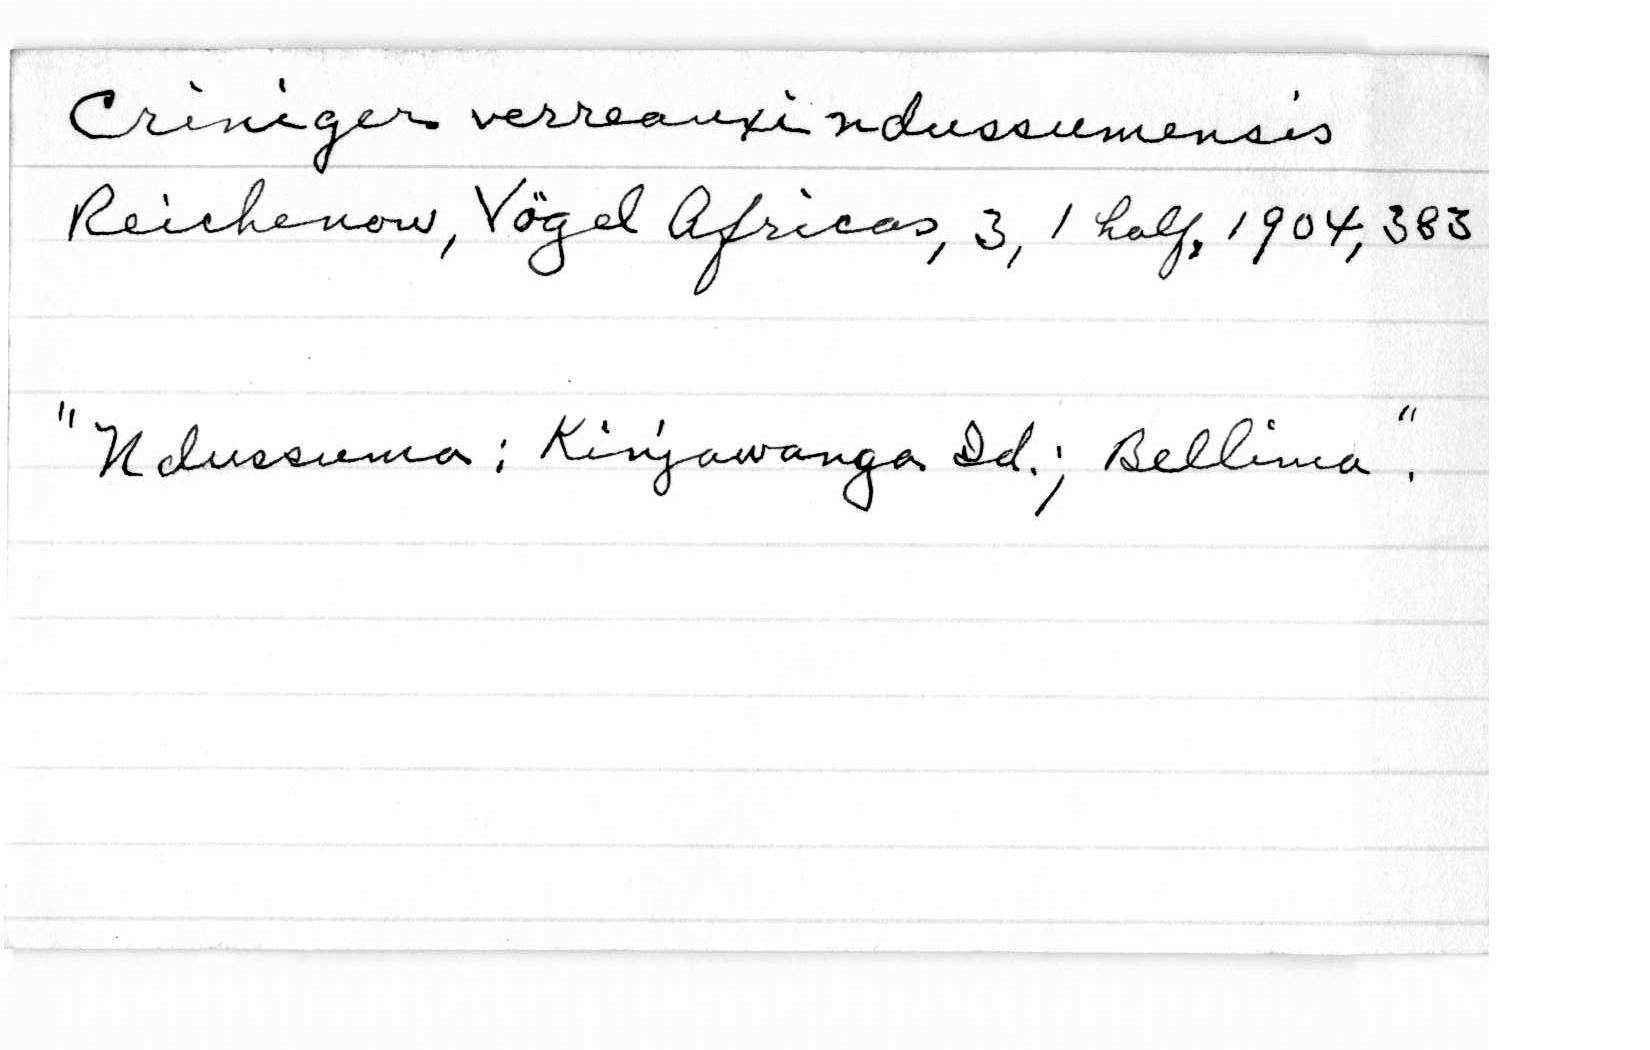 Criniger verreauxi ndussumensis
Reichenow, Vögel Africas, 3, 1 half, 1904, 383
"Ndussuma; Kinjawanga Id.; Bellima".